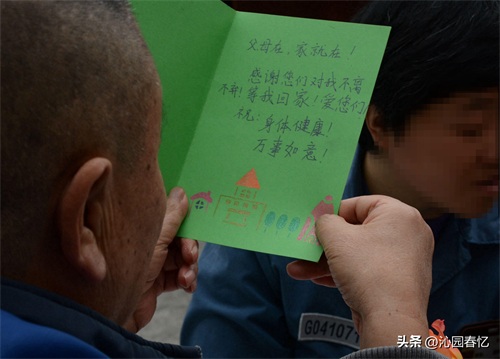 父母在、家就在！
感谢您们对我不离
不弃！等我回家！爱您们
祝：身体健康！
万事如意！
G04107
头条 @沁园春忆